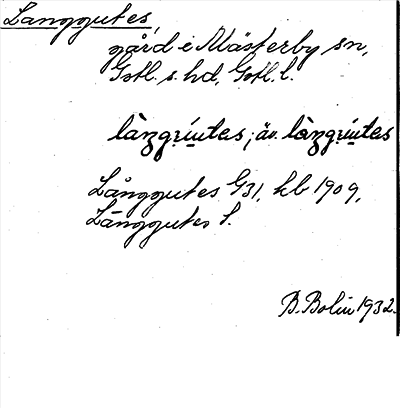 Langgutes,
gård i Mästerby sn,
Gotl. s. hd, Gotl. l.
Långgutes G31, kb 1909,
Långgutes l.
B. Bolin 1932.